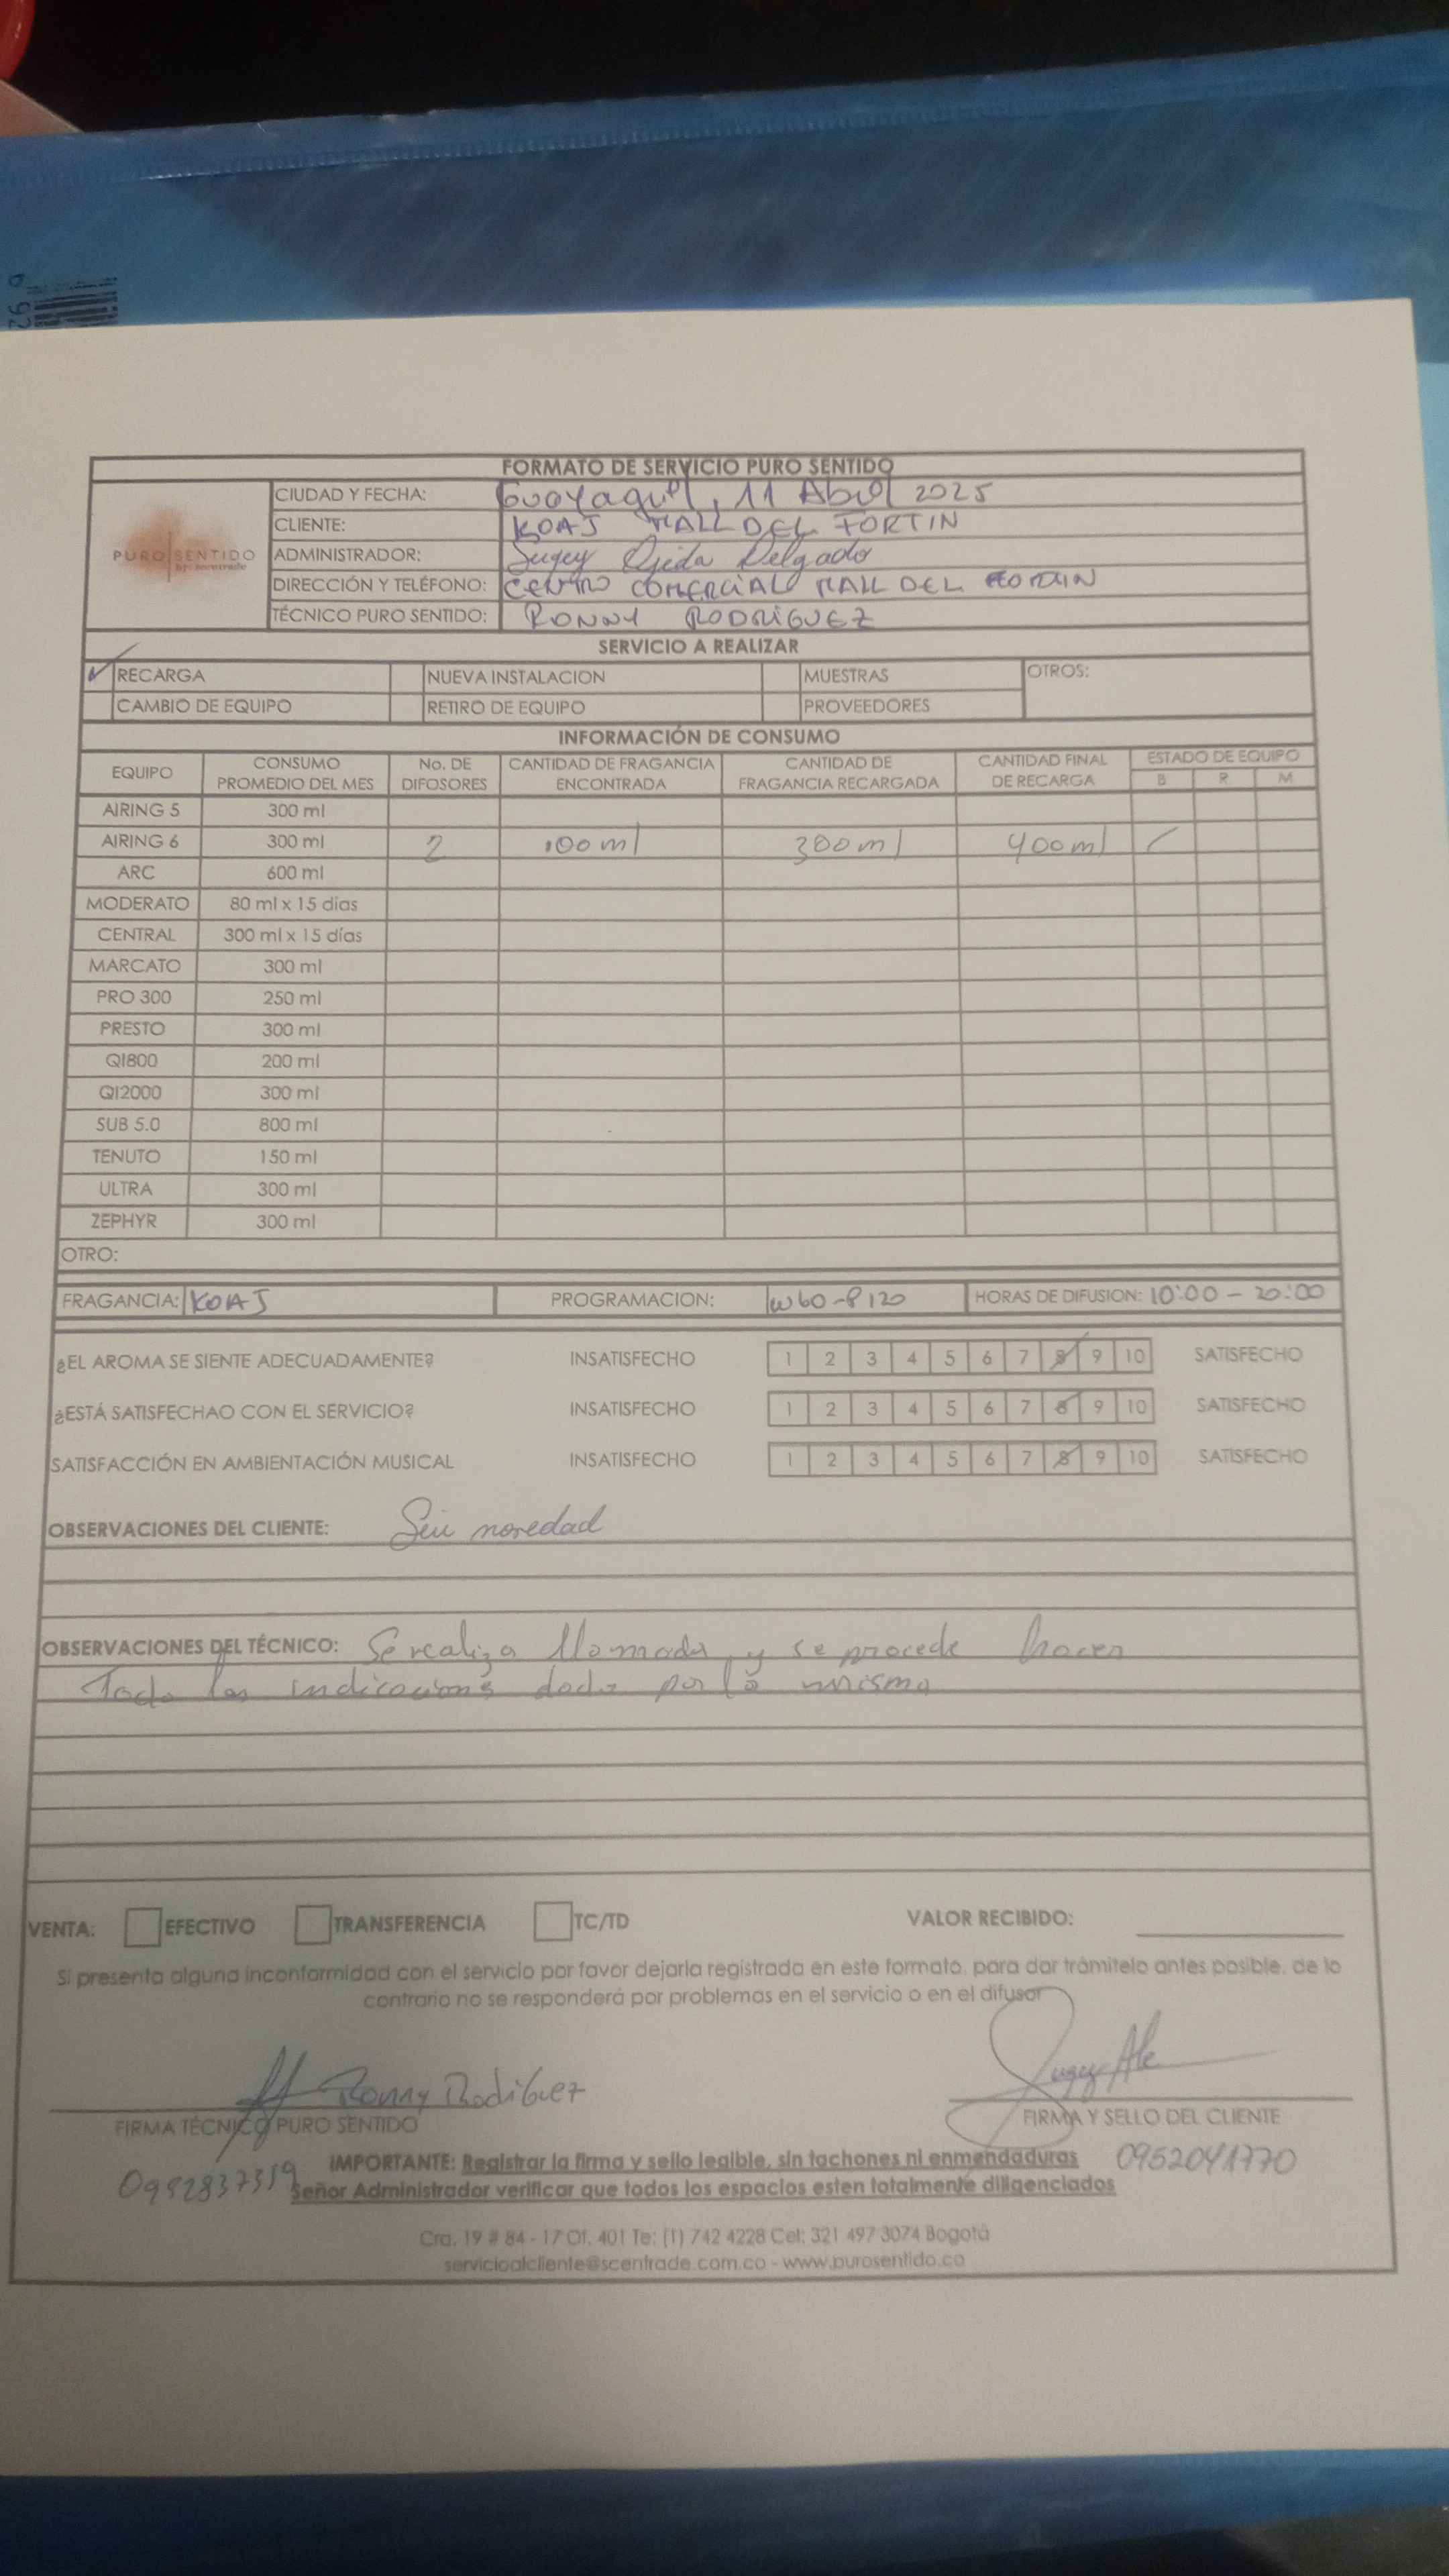 FORMATO DE SERVICIO PURO SENTIDO
PURO SENTIDO
by: scentrade
CIUDAD Y FECHA: Guayaquil, 11 Abril 2025
CLIENTE: KOAJ MALL DEL FORTIN
ADMINISTRADOR: Sugey Ojeda Delgado
DIRECCIÓN Y TELÉFONO: CENTRO COMERCIAL MALL DEL FORTIN
TÉCNICO PURO SENTIDO: RONNY RODRIGUEZ
SERVICIO A REALIZAR
✓ RECARGA NUEVA INSTALACION MUESTRAS OTROS:
CAMBIO DE EQUIPO RETIRO DE EQUIPO PROVEEDORES
INFORMACIÓN DE CONSUMO
EQUIPO CONSUMO PROMEDIO DEL MES No. DE DIFOSORES CANTIDAD DE FRAGANCIA ENCONTRADA CANTIDAD DE FRAGANCIA RECARGADA CANTIDAD FINAL DE RECARGA ESTADO DE EQUIPO
B R M
AIRING 5 300 ml
AIRING 6 300 ml 2 100 ml 300 ml 400 ml ✓
ARC 600 ml
MODERATO 80 ml x 15 días
CENTRAL 300 ml x 15 días
MARCATO 300 ml
PRO 300 250 ml
PRESTO 300 ml
QI800 200 ml
QI2000 300 ml
SUB 5.0 800 ml
TENUTO 150 ml
ULTRA 300 ml
ZEPHYR 300 ml
OTRO:
FRAGANCIA: KOAJ PROGRAMACION: W60-P120 HORAS DE DIFUSION: 10:00 - 20:00
¿EL AROMA SE SIENTE ADECUADAMENTE? INSATISFECHO 1 2 3 4 5 6 7 8 9 10 SATISFECHO
¿ESTÁ SATISFECHAO CON EL SERVICIO? INSATISFECHO 1 2 3 4 5 6 7 8 9 10 SATISFECHO
SATISFACCIÓN EN AMBIENTACIÓN MUSICAL INSATISFECHO 1 2 3 4 5 6 7 8 9 10 SATISFECHO
OBSERVACIONES DEL CLIENTE: Sin novedad
OBSERVACIONES DEL TÉCNICO: Se realiza llamada y se procede hacer
Toda las indicacions dada por la misma
VENTA: EFECTIVO TRANSFERENCIA TC/TD VALOR RECIBIDO:
Si presenta alguna inconformidad con el servicio por favor dejarla registrada en este formato, para dar trámitelo antes posible. de lo
contrario no se responderá por problemas en el servicio o en el difusor
Ronny Rodiguez
FIRMA TÉCNICO PURO SENTIDO FIRMA Y SELLO DEL CLIENTE
IMPORTANTE: Registrar la firma y sello legible, sin tachones ni enmendaduras 0952041770
0982837319 Señor Administrador verificar que todos los espacios esten totalmente diligenciados
Cra. 19 # 84 - 17 Of. 401 Te: (1) 742 4228 Cel: 321 497 3074 Bogotá
servicioalcliente@scentrade.com.co - www.purosentido.co